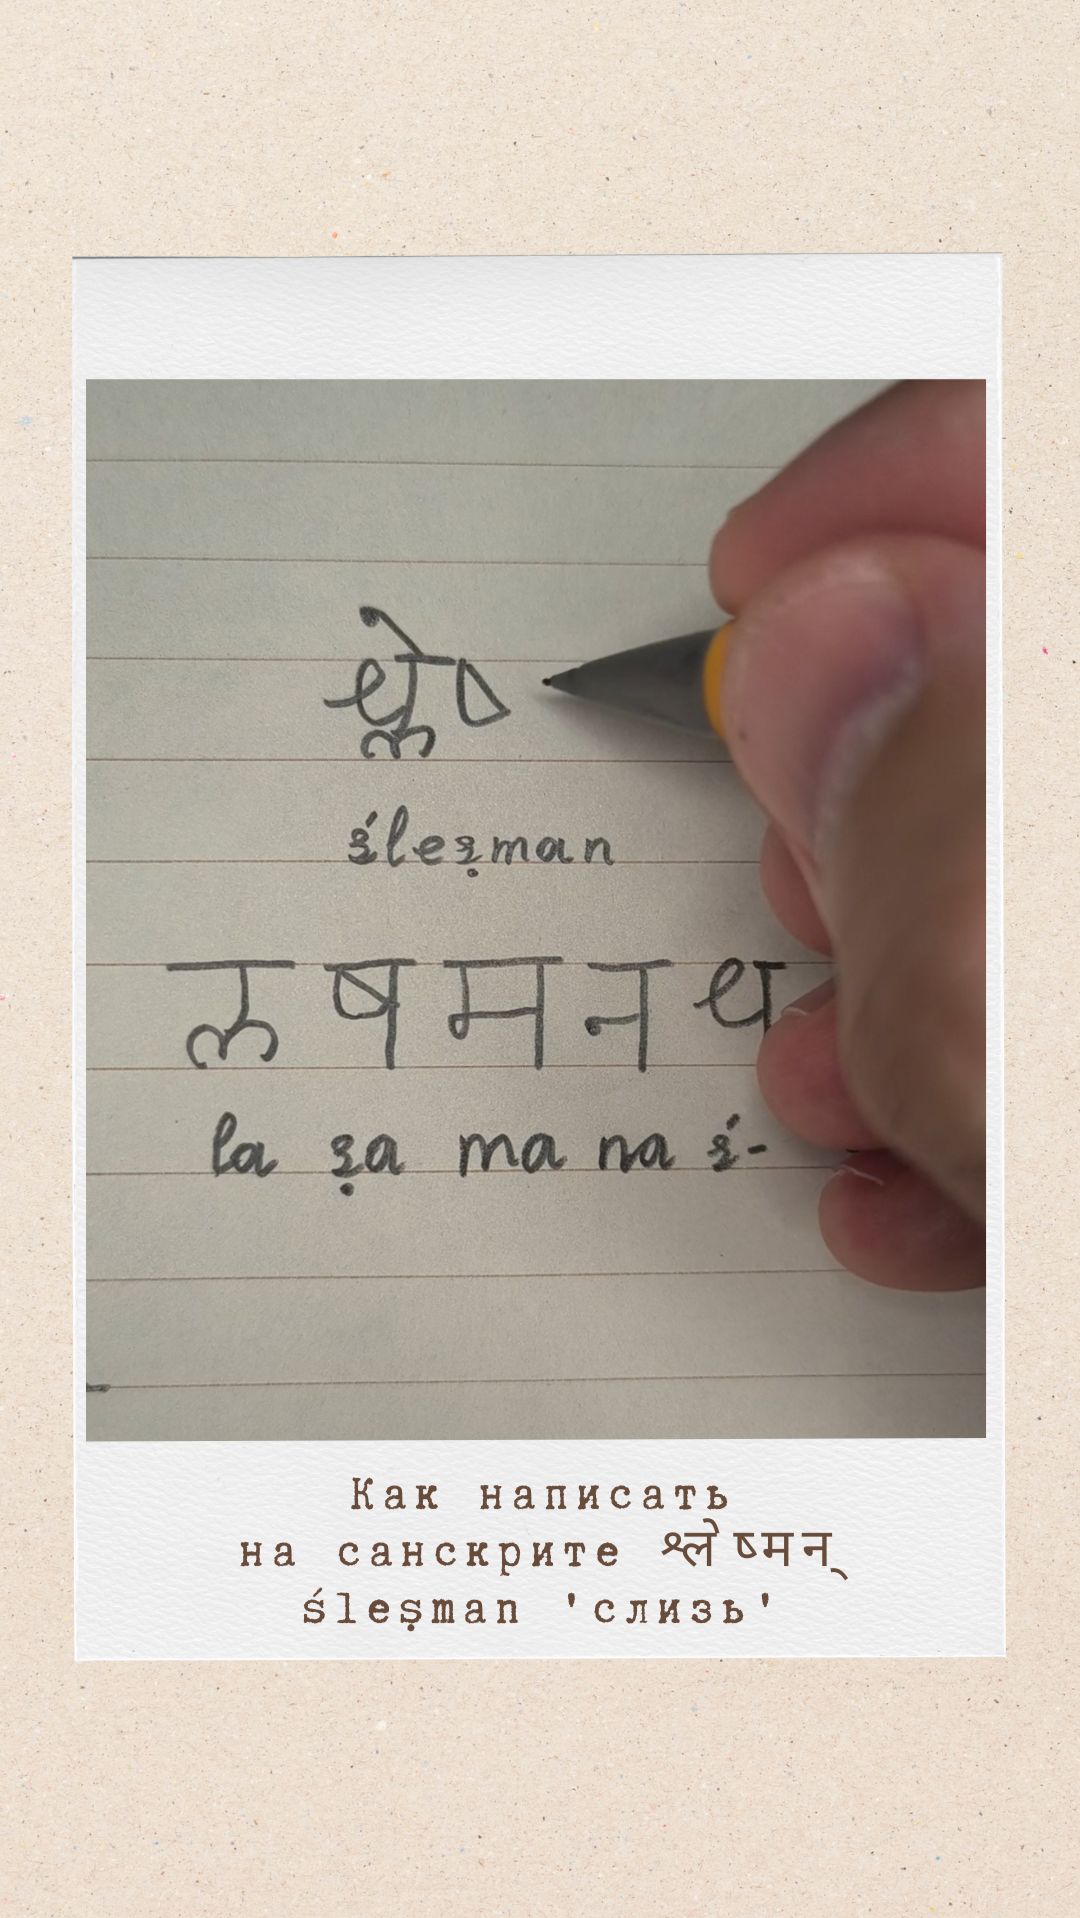 श्लेष्
śleṣman
ल ष म न श्
la ṣa ma na ś-
Как написать
на санскрите श्लेष्मन्
śleṣman 'слизь'